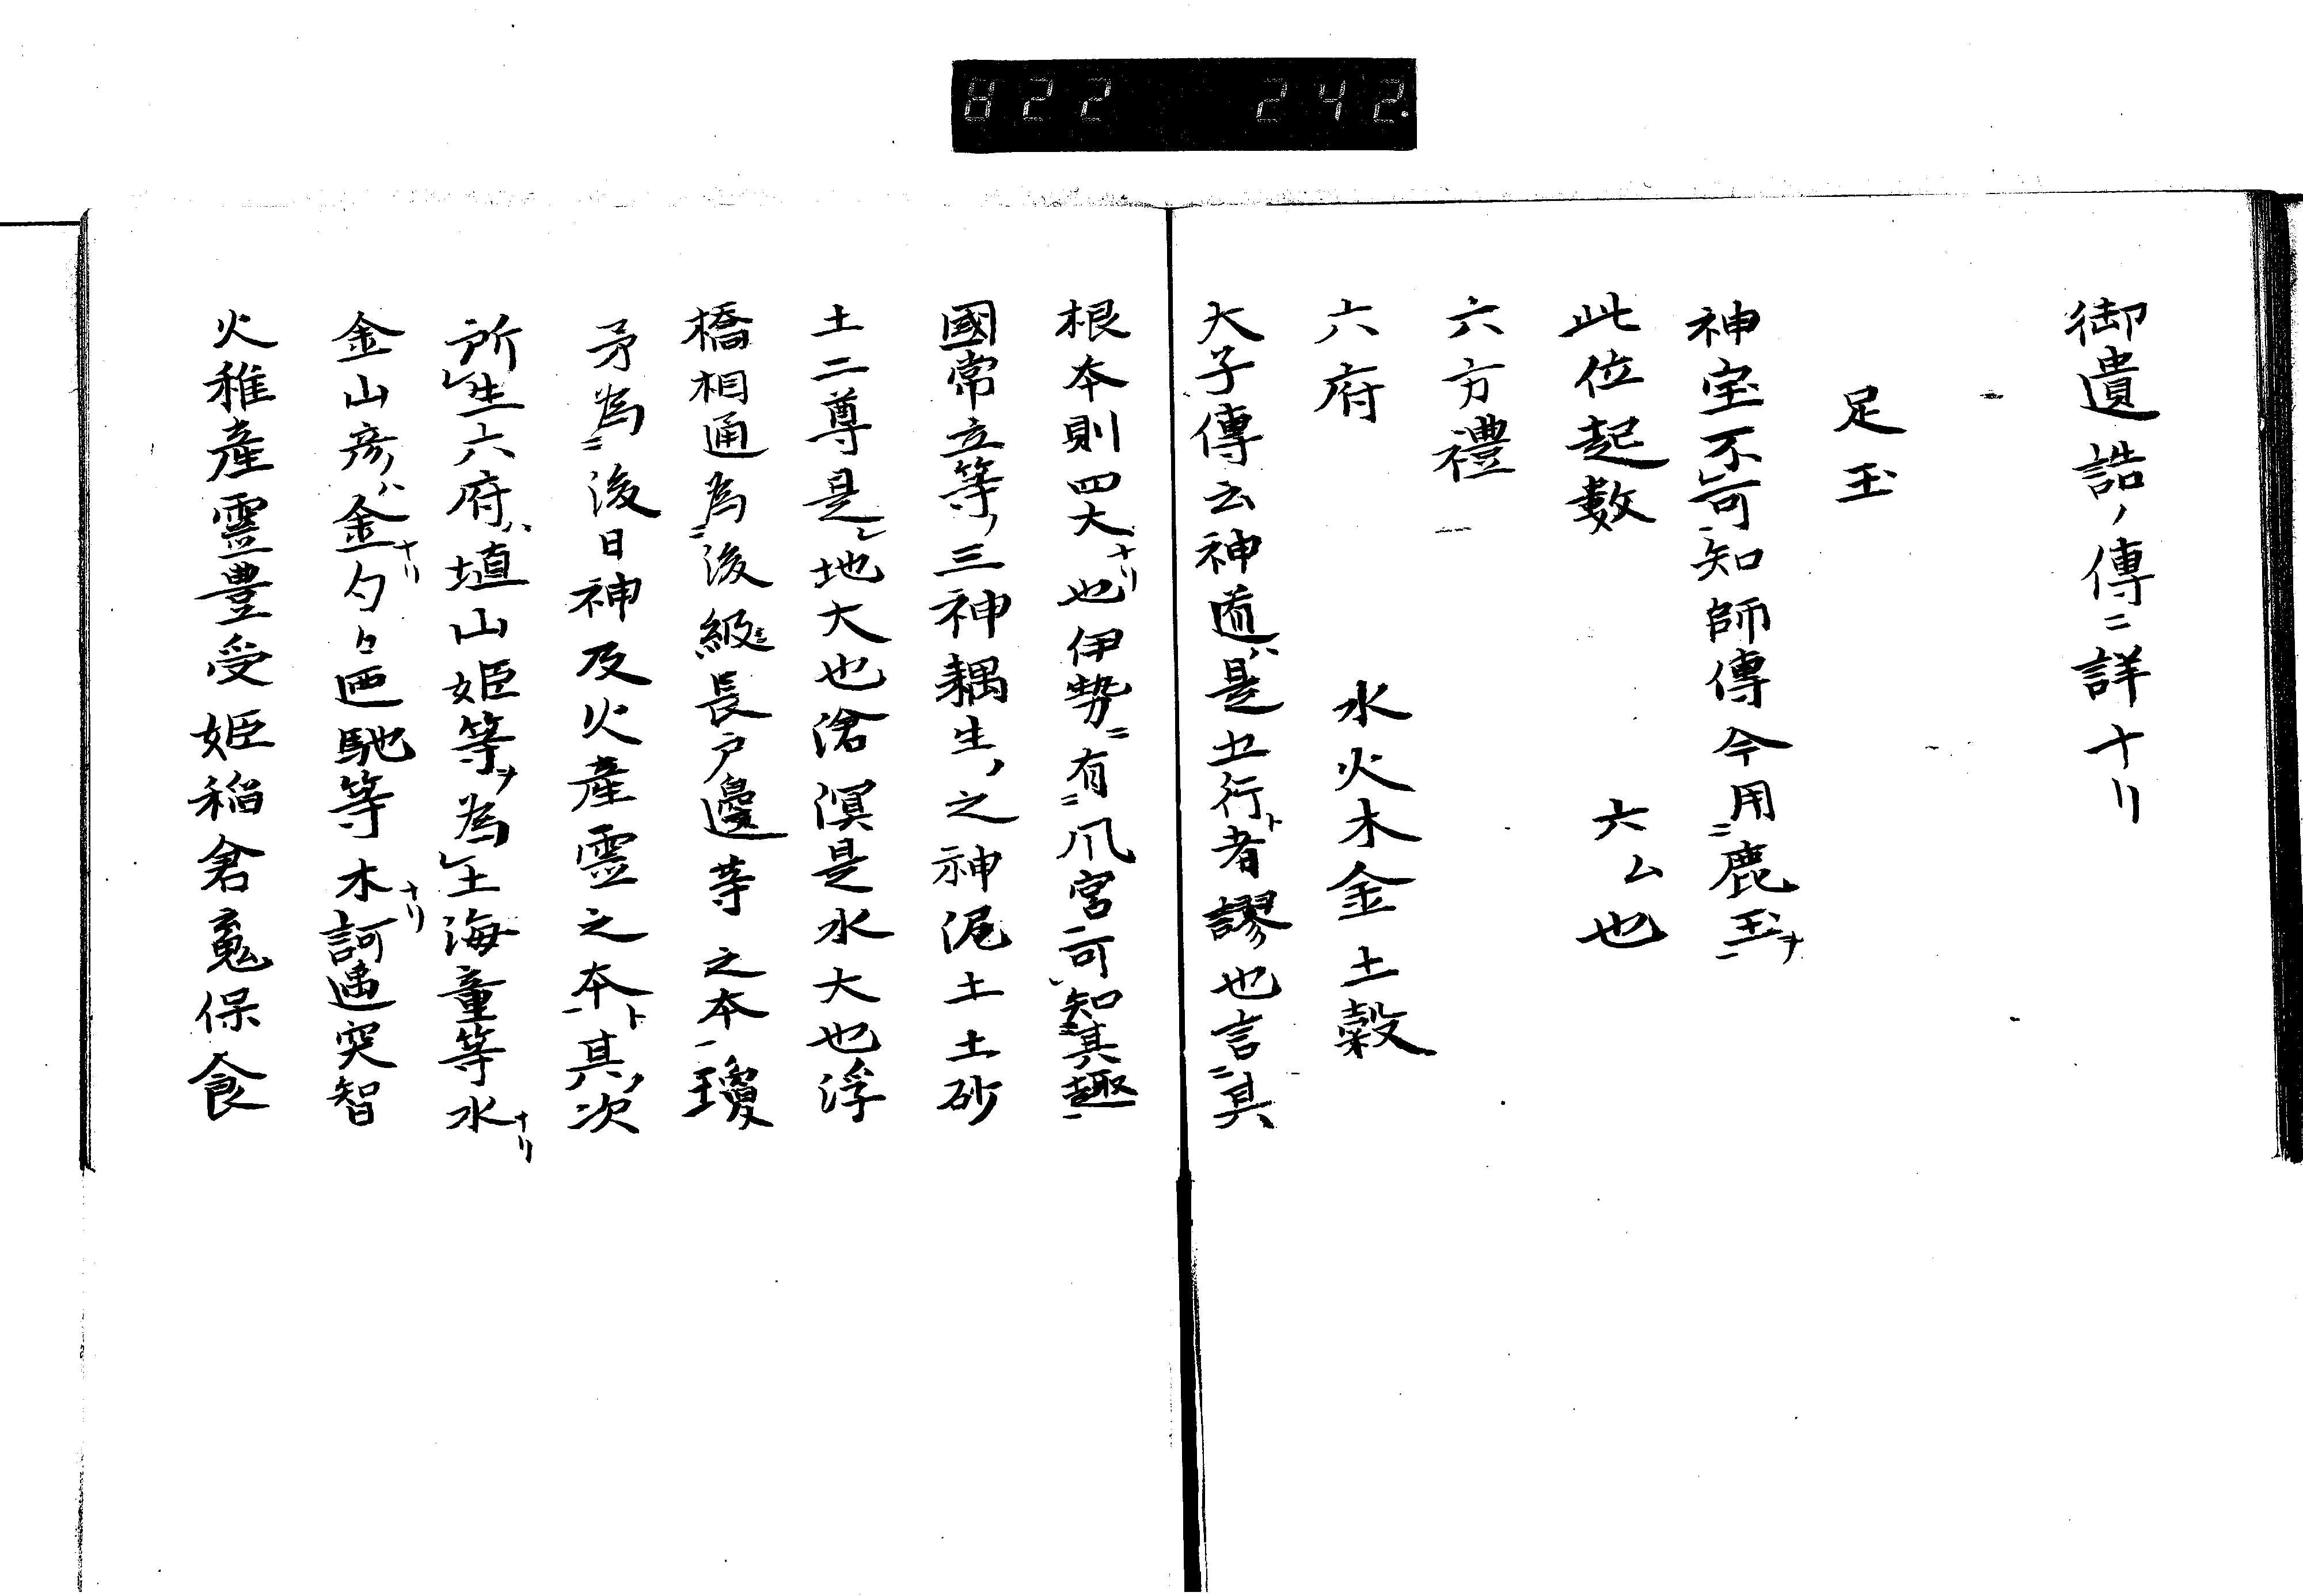 822 242.
御遺誥ノ傳ニ詳ナリ
足玉
神宝不可知師傳今用ニ鹿玉ヲ一
此位起数 六ム也
六方禮
六府 水火木金土穀
大子傳云神道ハ是五行ト者謬也言ニ其
根本則四大ナリ也伊勢ニ有ニ風宮一可レ知ニ其趣一
國常立等ノ三神耦生ノ之神泥土土砂
土二尊是レ地大也滄溟是水大也浮
橋相通為ニ後級長戸邊等之本一瓊
矛為ニ後日神及火産霊之本ト一其ノ次
所レ生六府ハ埴山姫等ヲ為レ土海童等水ナリ
金山彦ハ金ナリ勾々廼馳等木ナリ訶遇突智
火稚産霊豊受姫稲倉䰟保食